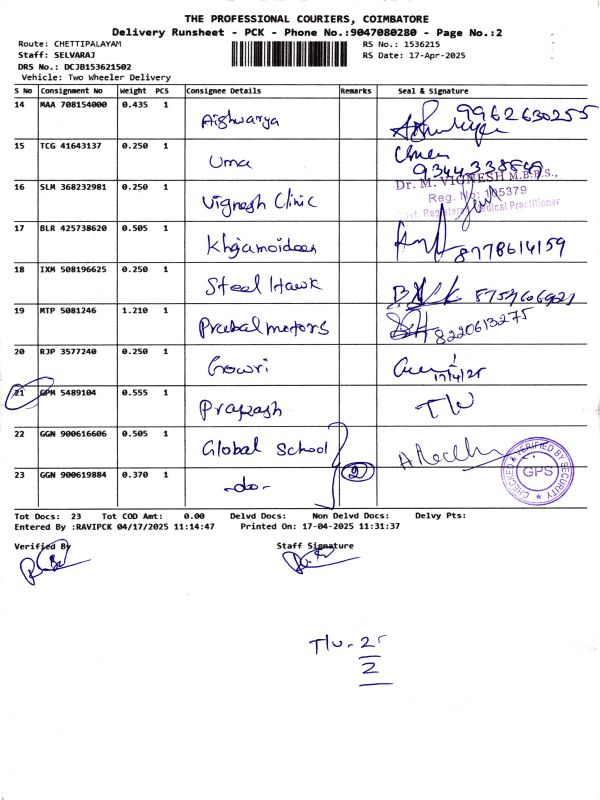 THE PROFESSIONAL COURIERS, COIMBATORE
Delivery Runsheet - PCK - Phone No.:9047080280 - Page No.:2
Route: CHETTIPALAYAM RS No.: 1536215
Staff: SELVARAJ RS Date: 17-Apr-2025
DRS No.: DCJB153621502
Vehicle: Two Wheeler Delivery
S No Consignment No Weight PCS Consignee Details Remarks Seal & Signature
14 MAA 708154000 0.435 1 Aishwarya 9962630255
15 TCG 41643137 0.250 1 Uma
16 SLM 368232981 0.250 1 Vignesh Clinic
Dr. M. VIGNESH M.B.B.S.,
Reg. No: 105379
17 BLR 425738620 0.505 1 8778614159
18 IXM 508196625 0.250 1 Steel Hawk
19 MTP 5081246 1.210 1 Prabal motors 8220613275
20 RJP 3577240 0.250 1 Gowri 17/4/25
21 GPM 5489104 0.555 1 Prakash
22 GGN 900616606 0.505 1 Global School
23 GGN 900619884 0.370 1 -do- 2
CHECKED & VERIFIED BY SECURITY
GPS
Tot Docs: 23 Tot COD Amt: 0.00 Delvd Docs: Non Delvd Docs: Delvy Pts:
Entered By :RAVIPCK 04/17/2025 11:14:47 Printed On: 17-04-2025 11:31:37
Verified By Staff Signature
2